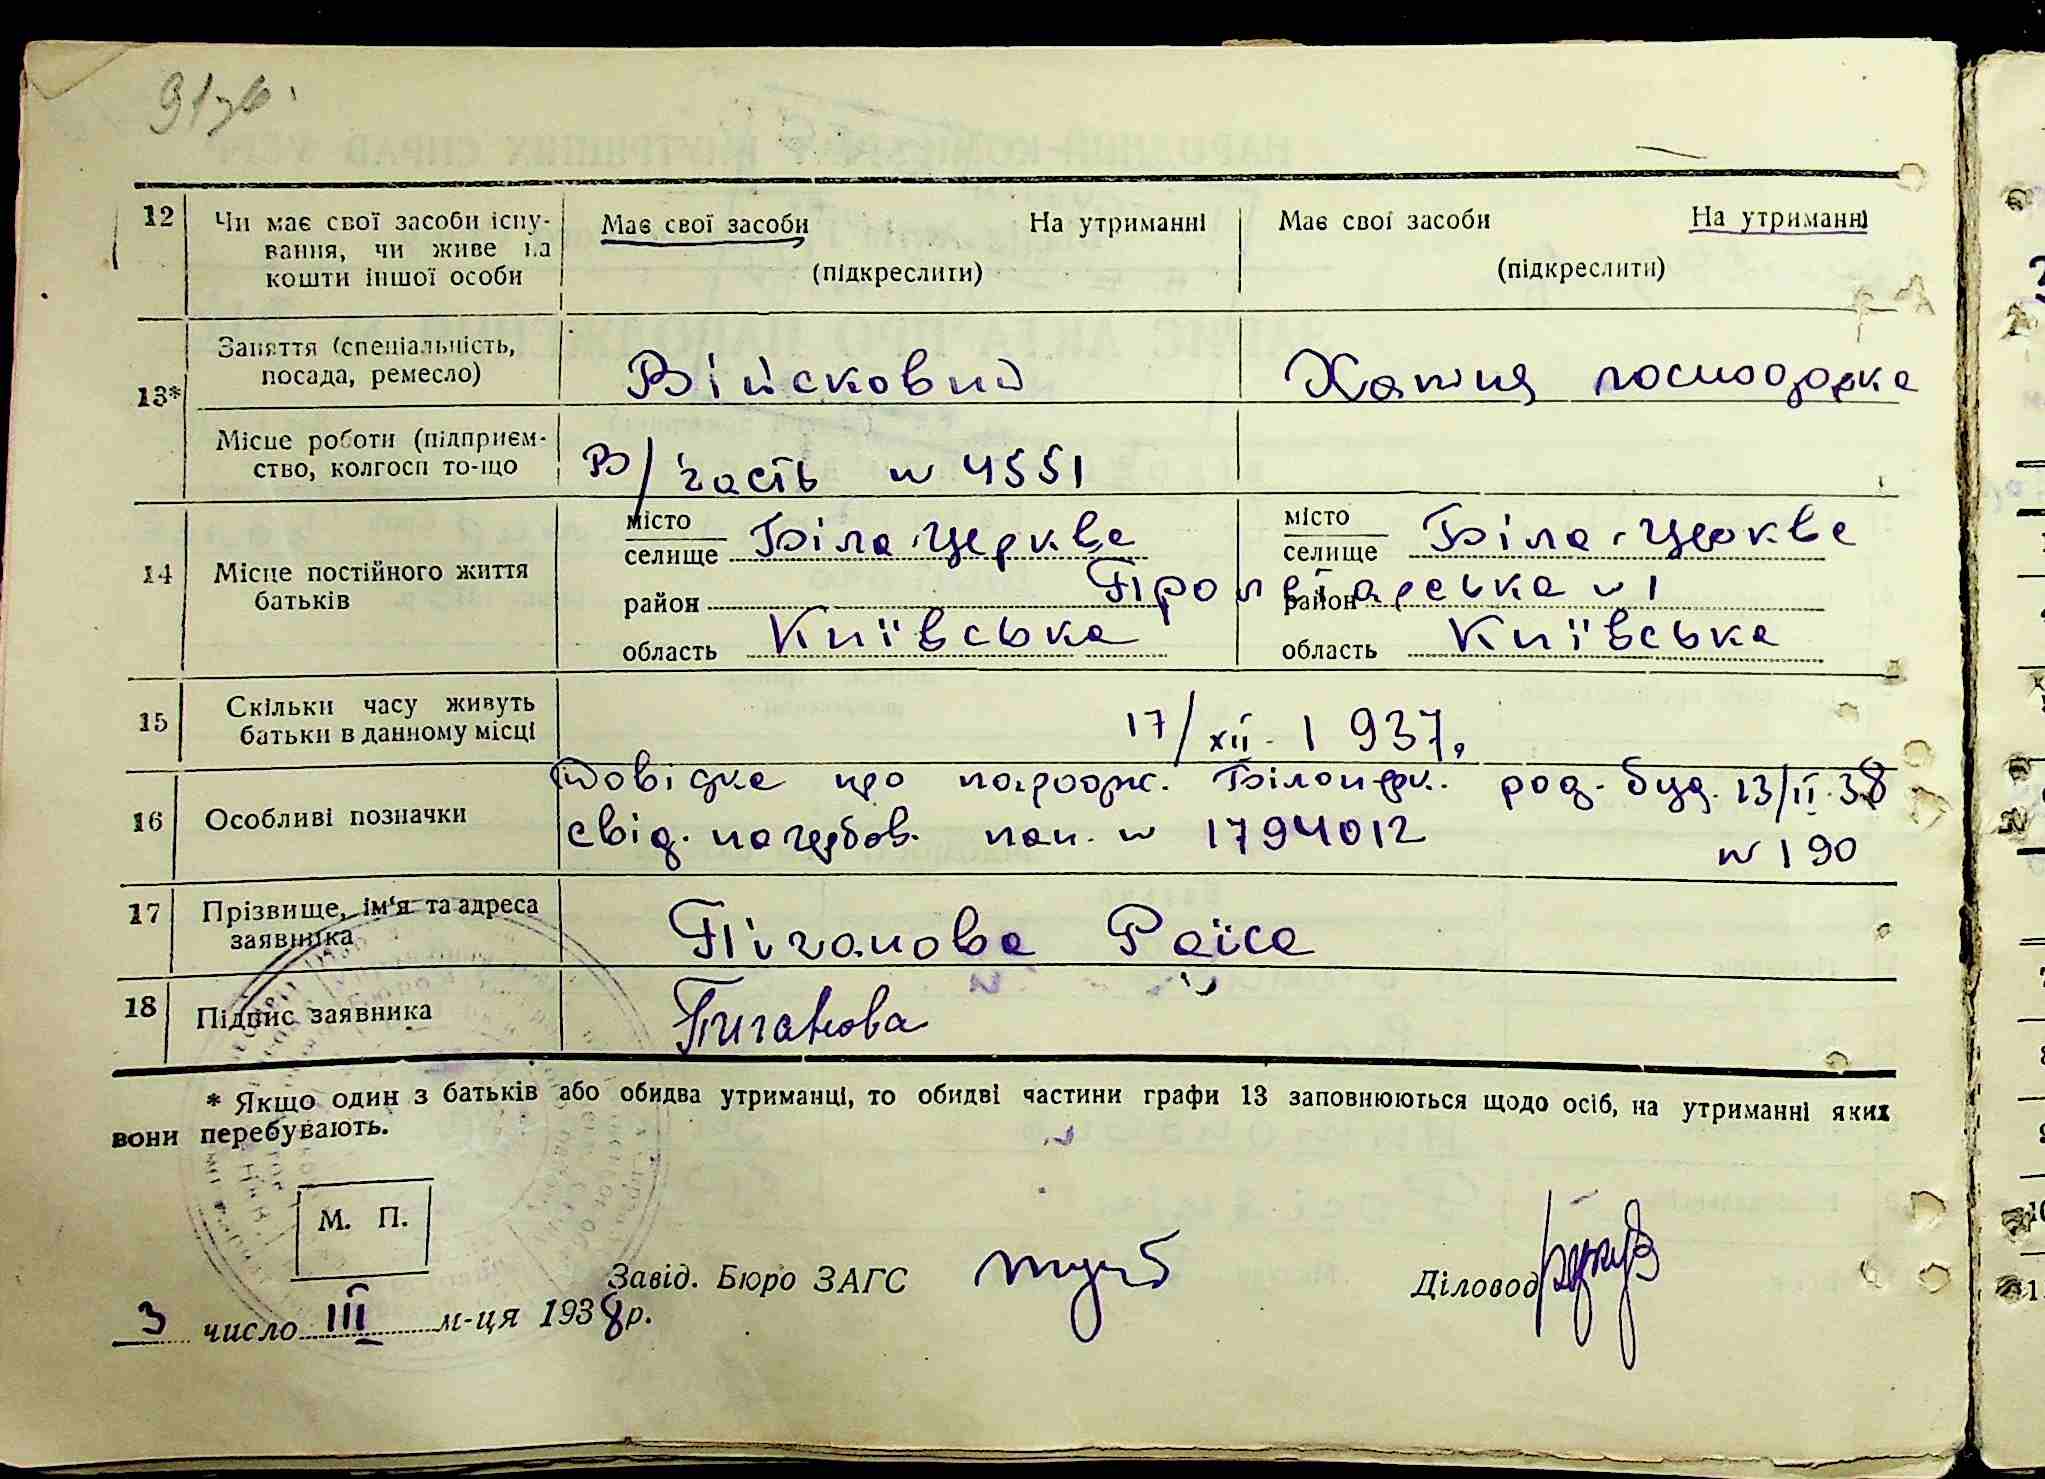 91 зв.
12 Чи має свої засоби існу- Має свої засоби На утриманні Має свої засоби На утриманні
вання, чи живе на
кошти іншої особи (підкреслити) (підкреслити)
13* Заняття (спеціальність,
посада, ремесло) Військовий Хатня господарка
Місце роботи (підприєм-
ство, колгосп то-що В/часть № 4551
14 Місце постійного життя
батьків
місто Біла-Церква місто Біла-Церква
селище селище
район Пролетарська № 1 район
область Київська область Київська
15 Скільки часу живуть
батьки в данному місці 17/XII - 1937.
16 Особливі позначки Довідка про народж. Білоцерк. род. буд. 23/II-38
свід. шлюбов. пап. № 1794012 № 190
17 Прізвище, ім'я та адреса
заявника Піганова Раїса
18 Підпис заявника Пиганова
* Якщо один з батьків або обидва утриманці, то обидві частини графи 13 заповнюються щодо осіб, на утриманні яких
вони перебувають.
М. П.
Завід. Бюро ЗАГС Діловод
3 число III м-ця 1938 р.